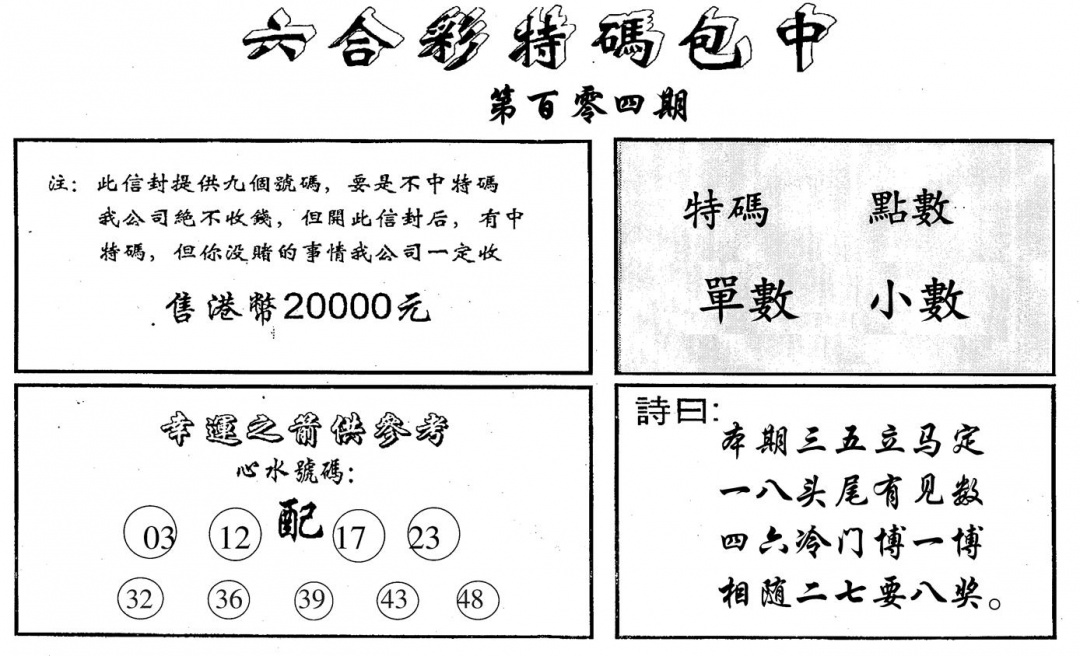 六合彩特碼包中
第百零四期
注：此信封提供九個號碼，要是不中特碼
我公司絕不收錢，但開此信封后，有中
特碼，但你没賭的事情我公司一定收
售港幣20000元
特碼 點數
單數 小數
幸運之箭供參考
心水號碼：
配
03 12 17 23
32 36 39 43 48
詩曰：
本期三五立马定
一八头尾有见数
四六冷门博一博
相随二七要八奖。